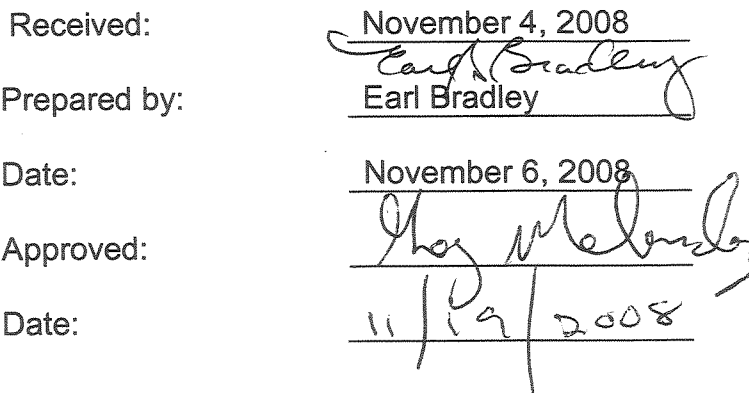 Received: November 4, 2008
Earl Bradley
Prepared by: Earl Bradley
Date: November 6, 2008
Approved:
Date: 11/19/2008